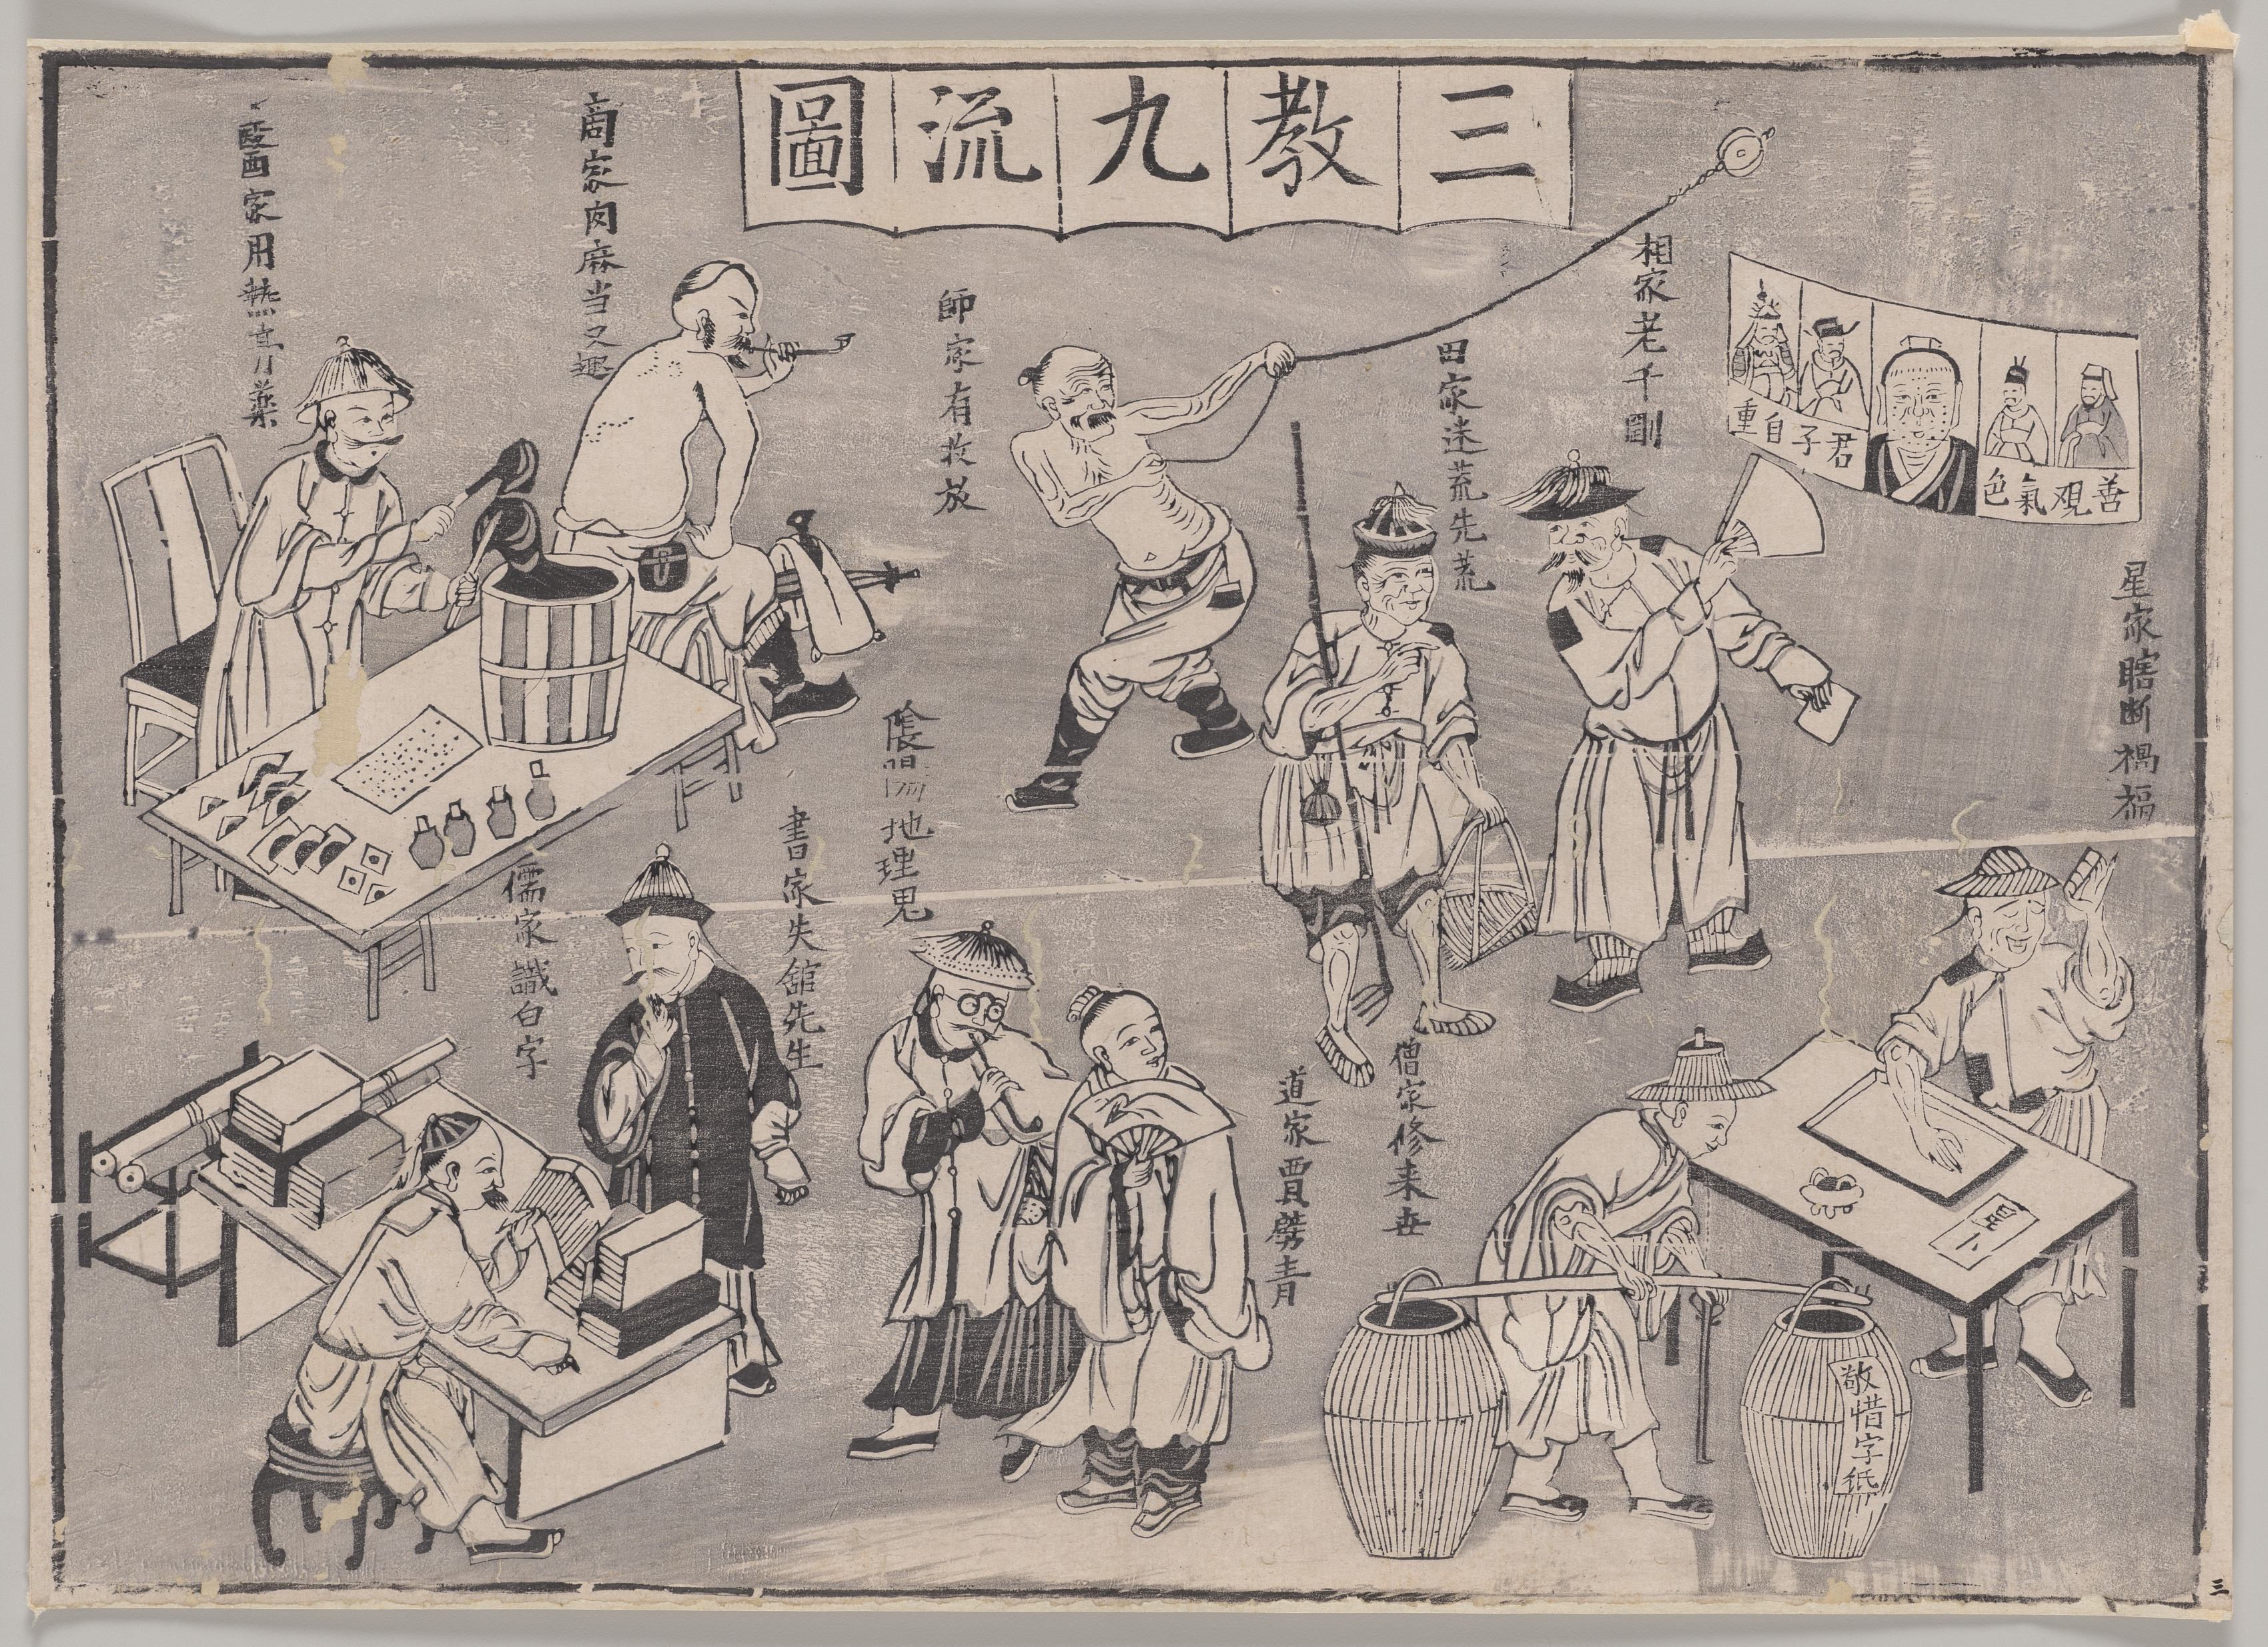 三教九流圖
善观氣色
君子自重
星家瞎断禍福
相家老千剛
田家迷荒先荒
師家有收放
商家肉麻当又趣
醫家用熱膏藥
星卜
敬惜字纸
僧家修来世
道家賈劈青
陰陽地理鬼
書家失舘先生
儒家識白字
三